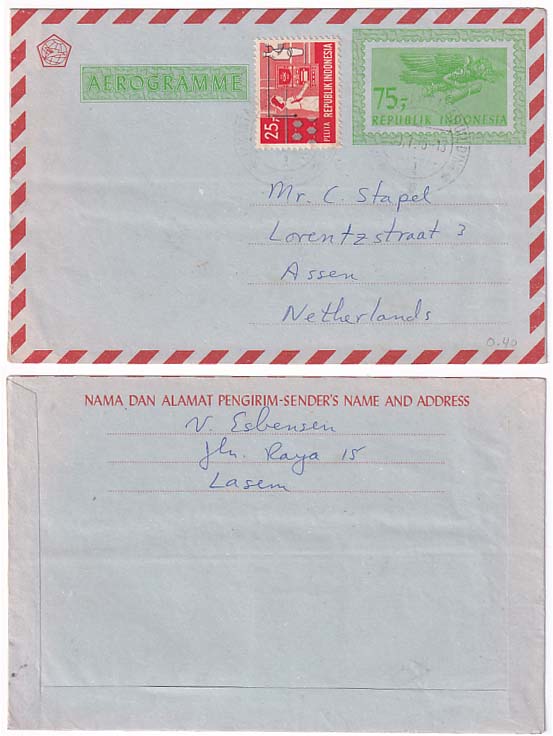 AEROGRAMME
25,-
PELITA
REPUBLIK INDONESIA
75,-
REPUBLIK INDONESIA
Mr. C. Stapel
Lorentzstraat 3
Assen
Netherlands
0.40
NAMA DAN ALAMAT PENGIRIM-SENDER'S NAME AND ADDRESS
V. Esbensen
Jln. Raya 15
Lasem